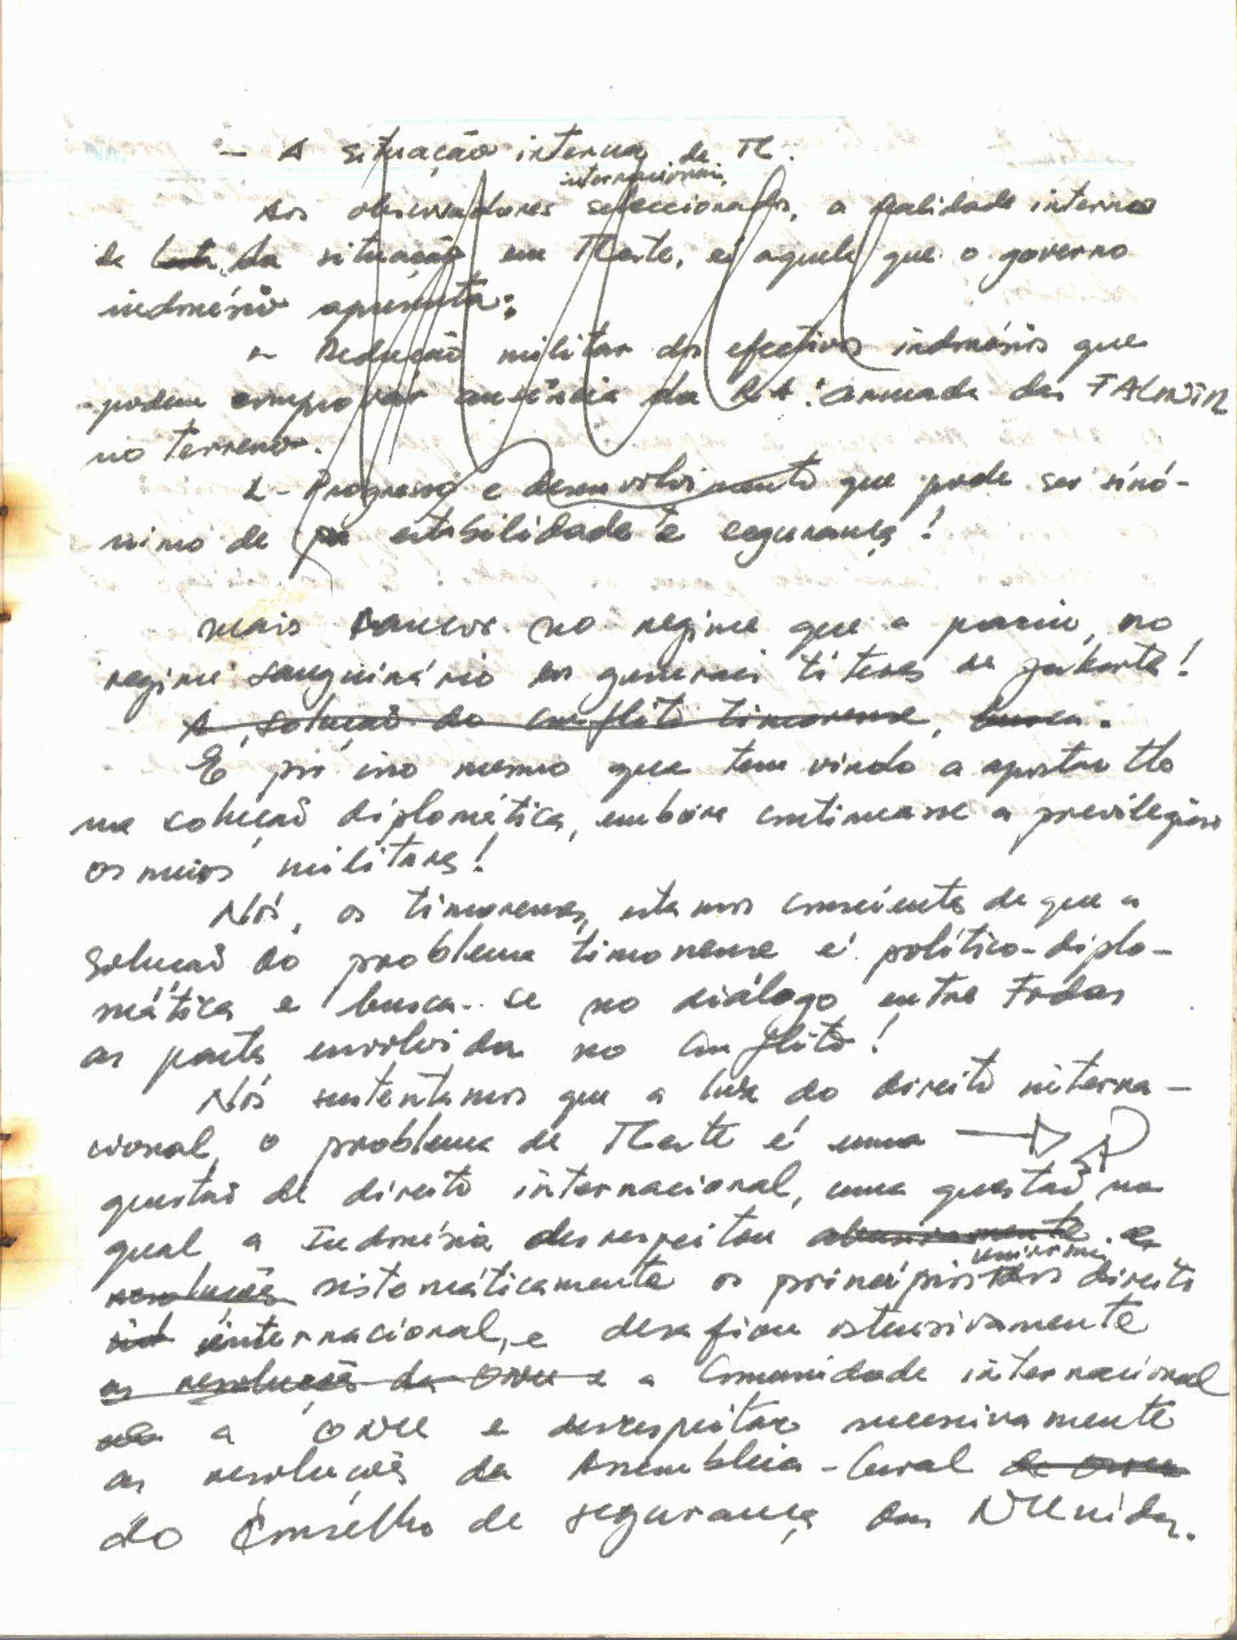 - A situação interna de TL.
internacionais
Aos observadores seleccionados, a realidade interna
de luta da situação em TLeste, é aquela que o governo
indonésio apresenta:
1- Redução militar dos efectivos indonésios que
podem comprovar ausência da R.A. armada das FALINTIL
no terreno.
2- Progresso e desenvolvimento que pode ser sinó-
nimo de estabilidade e segurança!
mais no regime que a no
regime sanguinário dos generais títeres de Jakarta!
A solução do conflito timorense, busca.
É por isso mesmo que tem vindo a apostar
na solução diplomática, embora continuasse a previlegiar
os meios militares!
Nós, os timorenses, estamos conscientes de que a
solução do problema timorense é político-diplo-
mática e busca-se no diálogo entre todas
as partes envolvidas no conflito!
Nós sustentamos que a luz do direito interna-
cional, o problema de TLeste é uma
questão de direito internacional, uma questão na
qual a Indonésia desrespeitou abusivamente as
universais
resoluções sistemáticamente os princípios do direito
internacional, e desafiou ostensivamente
as resoluções da ONU e a Comunidade internacional
a ONU e desrespeitar sucessivamente
as resoluções da Assembleia-Geral da ONU
do Conselho de segurança das NUnidas.